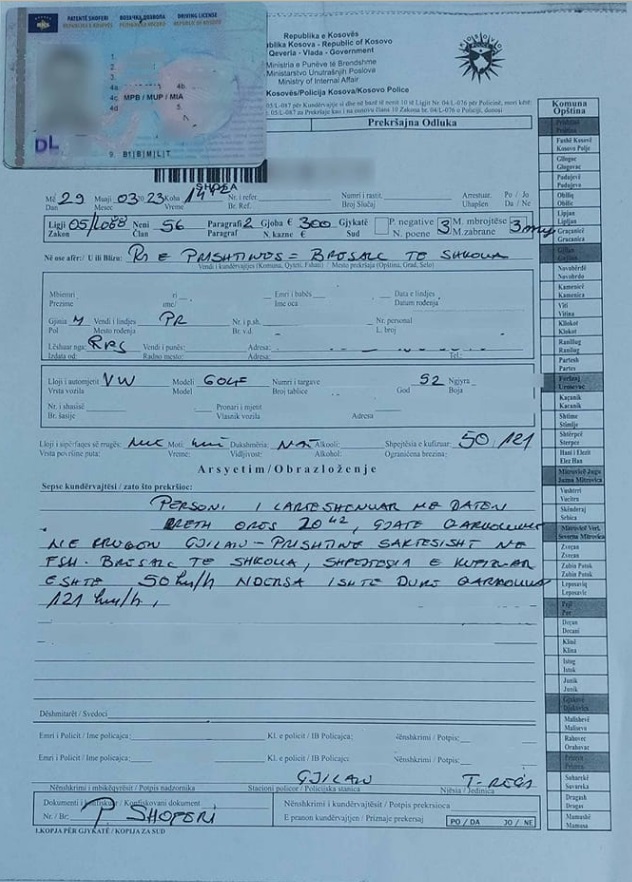 PATENTË SHOFERI
VOZAČKA DOZVOLA
DRIVING LICENSE
REPUBLIKA E KOSOVËS
REPUBLIC OF KOSOVO
1.
2.
3.
4a
4b.
4c MPB / MUP / MIA
5.
DL
9. B1|B|M|L|T
Republika e Kosovës
blika Kosova - Republic of Kosovo
Qeveria - Vlada - Government
Ministria e Punëve të Brendshme
Ministarstvo Unutrašnjih Poslova
Ministry of Internal Affair
Kosovës/Policija Kosova/Kosovo Police
Prekršajna Odluka
Më 29 Muaji 03 20 23 Koha
Dan Mesec Vreme
Nr. i refer.
Br. Ref.
Numri i rastit.
Broj Slučaj
Arrestuar. Po / Jo
Uhapšen Da / Ne
Ligji 05/L088 Neni 56 Paragrafi 2 Gjoba € 300 Gjykatë P. negative 3 M. mbrojtëse 3 muj
Zakon Član Paragraf N. kazne € Sud N. poene M. zabrane
Në ose afër: U ili Blizu: RR E PRISHTINËS = BRESALC TE SHKOLLA
Vendi i kundërvajtjes (Komuna, Qyteti, Fshati) / Mesto prekršaja (Opština, Grad, Selo)
Mbiemri
Prezime
Emri i babës
Ime oca
Data e lindjes
Datum rođenja
Gjinia M Vendi i lindjes PR Nr. i p.sh. Nr. personal
Pol Mesto rođenja Br. v.d. L. broj
Lëshuar nga: RKS Vendi i punës: Adresa:
Izdata od: Radno mesto: Adresa: Tel.:
Lloji i automjetit VW Modeli GOLF Numri i targave 92 Ngjyra
Vrsta vozila Model Broj tablice God Boja
Nr. i shasisë Pronari i mjetit
Br. šasije Vlasnik vozila Adresa
Lloji i sipërfaqes së rrugës: Moti Dukshmëria Alkooli: Shpejtësia e kufizuar 50/121
Vrsta površine puta: Vreme: Vidljivost: Alkohol: Ograničena brzina:
Arsyetim/Obrazloženje
Sepse kundërvajtësi / zato što prekršioc:
PERSONI I LARTESHENUAR ME DATEN
RRETH ORES 20 42, GJATE QARKULLIMIT
NE RRUGEN GJILAN - PRISHTINE SAKTESISHT NE
FSH. BRESALC TE SHKOLLA, SHPEJTESIA E KUFIZUAR
ESHTE 50 km/h NDERSA ISHTE DUKE QARKULLUAR
121 km/h,
Dëshmitarët / Svedoci
Emri i Policit / Ime policajca: Kl. e policit / IB Policajca: Nënshkrimi / Potpis:
Emri i Policit / Ime policajca: Kl. e policit / IB Policajca: Nënshkrimi / Potpis:
GJILAN
Nënshkrimi i mbikëqyrësit / Potpis nadzornika Stacioni policor / Policijska stanica Njësia / Jedinica
Dokumenti i konfiskuar / Konfiskovani dokument
Nr./ Br: P. SHOFERI
Nënshkrimi i kundërvajtësit / Potpis prekrsioca
E pranon kundërvajtjen / Priznaje prekersaj PO / DA JO / NE
1.KOPJA PËR GJYKATË / KOPIJA ZA SUD
Komuna
Opština
Fushë Kosovë
Kosovo Polje
Gllogoc
Glogovac
Podujevë
Podujevo
Obiliq
Obilić
Lipjan
Lipljan
Graçanicë
Gračanica
Novobërdë
Novobrdo
Kamenicë
Kamenica
Viti
Vitina
Kllokot
Klokot
Ranillug
Ranilug
Partesh
Parteš
Ferizaj
Uroševac
Kaçanik
Kačanik
Shtime
Štimlje
Shtërpcë
Štrpce
Hani i Elezit
Elez Han
Vushtrri
Vučitrn
Skënderaj
Srbica
Zveçan
Zvečan
Zubin Potok
Zubin Potok
Leposaviq
Leposavić
Pejë
Peć
Deçan
Dečani
Klinë
Klina
Istog
Istok
Junik
Junik
Malishevë
Mališevo
Rahovec
Orahovac
Suharekë
Suvareka
Dragash
Dragaš
Mamushë
Mamuša